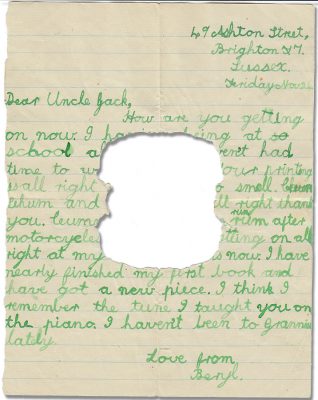 49 Ashton Street,
Brighton
Sussex.
Friday Nov 24
Dear Uncle Jack,
How are you getting
on now. I ha being at so
school a ven't had
time to w our printing
is all right o smell.
and ll right thank
you. rum after
motorcycles tting on all
right at my s now. I have
nearly finished my first book and
have got a new piece. I think I
remember the tune I taught you on
the piano. I haven't been to Grannies
lately.
Love from,
Beryl.